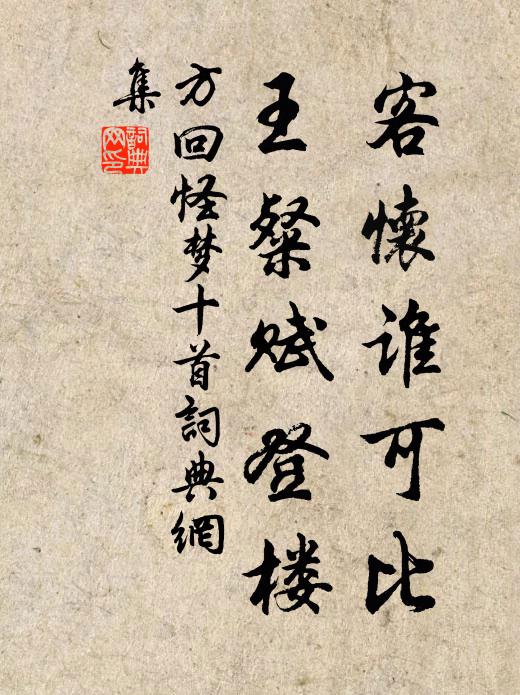 客懷谁可比
王粲赋登楼
方回怪梦十首詞典網
集
詞典网印